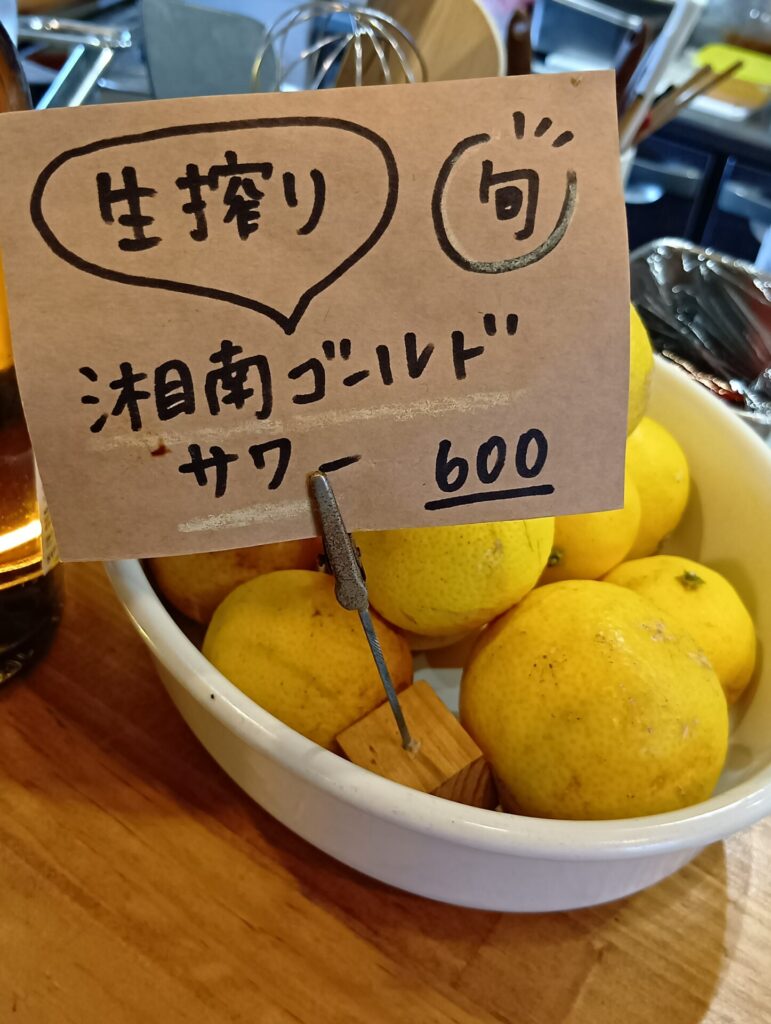 生搾り
旬
湘南ゴールド
サワー 600